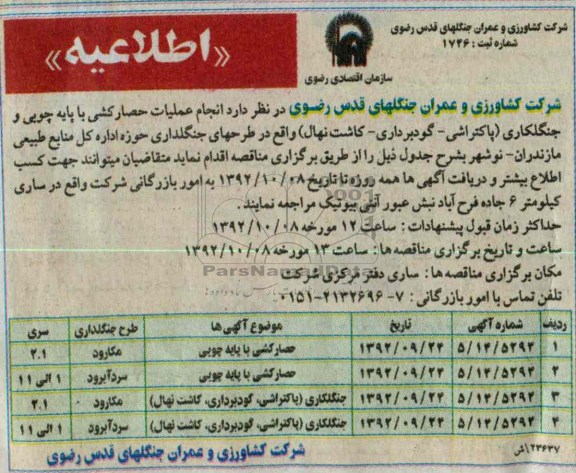 شرکت کشاورزی و عمران جنگلهای قدس رضوی
شماره ثبت : ۱۷۴۶
سازمان اقتصادی رضوی
«اطلاعیه»
شرکت کشاورزی و عمران جنگلهای قدس رضوی در نظر دارد انجام عملیات حصارکشی با پایه چوبی و
جنگلکاری (پاکتراشی- گودبرداری- کاشت نهال) واقع در طرحهای جنگلداری حوزه اداره کل منابع طبیعی
مازندران- نوشهر بشرح جدول ذیل را از طریق برگزاری مناقصه اقدام نماید متقاضیان میتوانند جهت کسب
اطلاع بیشتر و دریافت آگهی ها همه روزه تا تاریخ ۱۳۹۲/۱۰/۰۸ به امور بازرگانی شرکت واقع در ساری
کیلومتر ۶ جاده فرح آباد نبش عبور آنتی بیوتیک مراجعه نمایند.
حداکثر زمان قبول پیشنهادات : ساعت ۱۲ مورخه ۱۳۹۲/۱۰/۰۸
ساعت و تاریخ برگزاری مناقصه ها : ساعت ۱۳ مورخه ۱۳۹۲/۱۰/۰۸
مکان برگزاری مناقصه ها : ساری دفتر مرکزی شرکت
تلفن تماس با امور بازرگانی : ۷-۲۱۳۲۶۹۶-۰۱۵۱
ParsNamadData
ردیف شماره آگهی تاریخ موضوع آگهی ها طرح جنگلداری سری
۱ ۵/۱۴/۵۲۹۲ ۱۳۹۲/۰۹/۲۴ حصارکشی با پایه چوبی مکارود ۲،۱
۲ ۵/۱۴/۵۲۹۲ ۱۳۹۲/۰۹/۲۴ حصارکشی با پایه چوبی سردآبرود ۱ الی ۱۱
۳ ۵/۱۴/۵۲۹۲ ۱۳۹۲/۰۹/۲۴ جنگلکاری (پاکتراشی، گودبرداری، کاشت نهال) مکارود ۲،۱
۴ ۵/۱۴/۵۲۹۲ ۱۳۹۲/۰۹/۲۴ جنگلکاری (پاکتراشی، گودبرداری، کاشت نهال) سردآبرود ۱ الی ۱۱
۲۳۶۳۷/ش
شرکت کشاورزی و عمران جنگلهای قدس رضوی